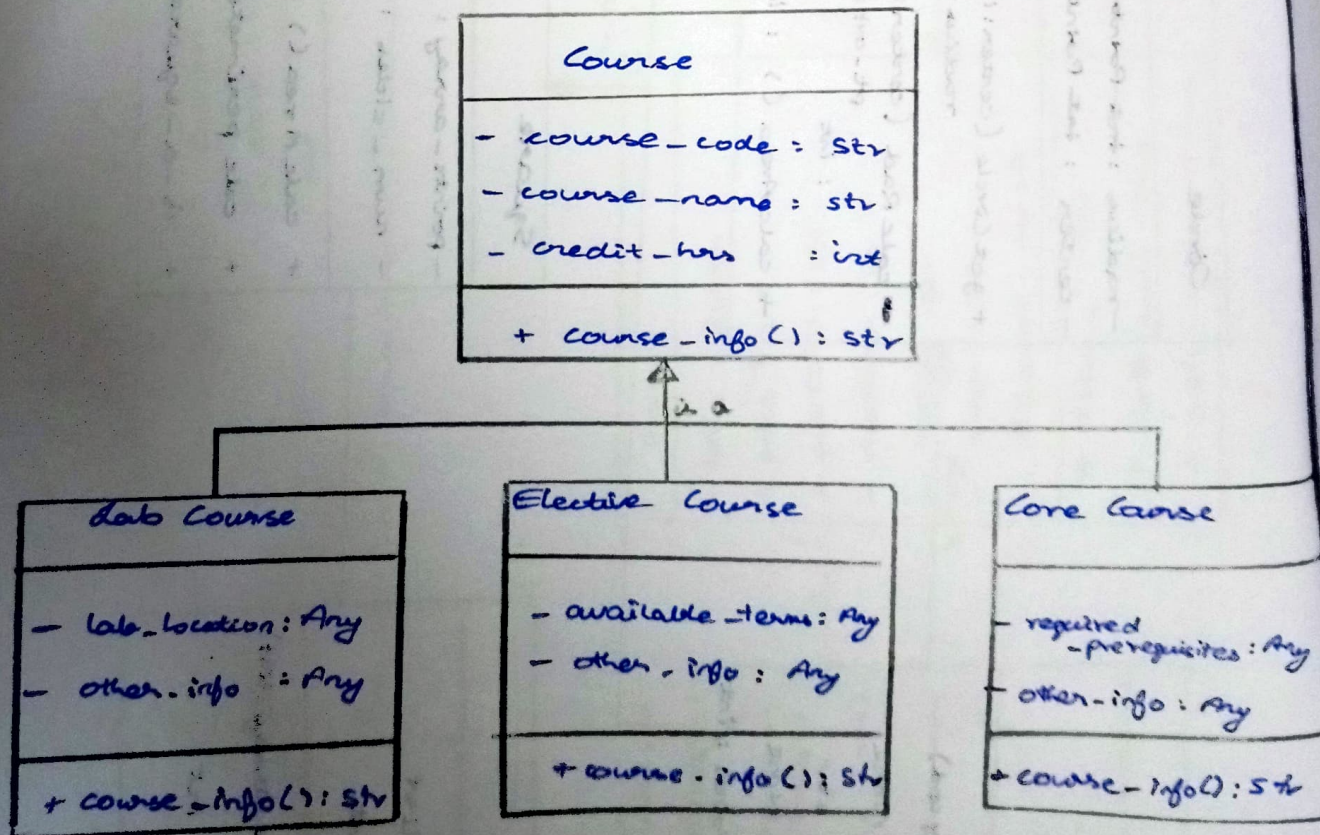 Course
- course_code : str
- course_name : str
- credit_hrs : int
+ course_info() : str
is a
Lab Course
- lab_location : Any
- other_info : Any
+ course_info() : str
Elective Course
- available_terms : Any
- other_info : Any
+ course_info() : str
Core Course
- required
_prerequisites : Any
- other_info : Any
+ course_info() : str